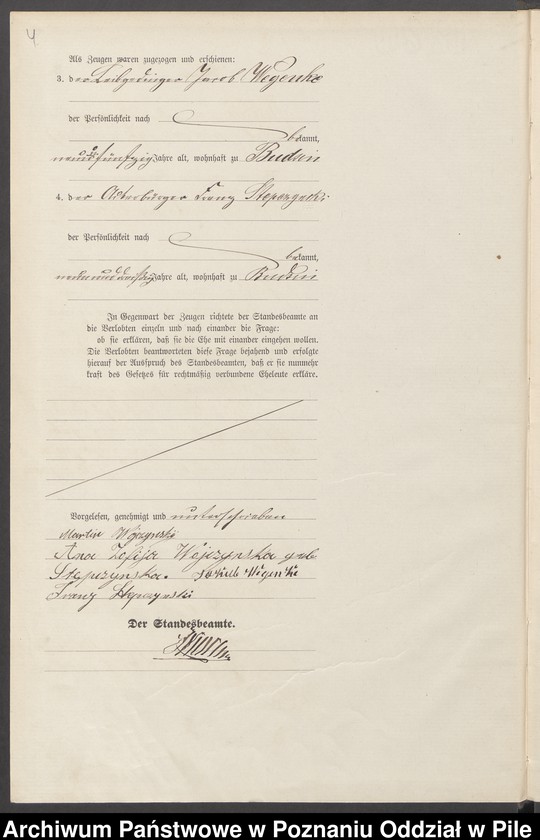 4
Als Zeugen waren zugezogen und erschienen:
3. der Leibgedinger Jacob Wegenke
der Persönlichkeit nach
bekannt,
neunundfünfzig Jahre alt, wohnhaft zu Buddin
4. der Ackerbürger Franz Stepczynski
der Persönlichkeit nach
bekannt,
neunund Jahre alt, wohnhaft zu
In Gegenwart der Zeugen richtete der Standesbeamte an
die Verlobten einzeln und nach einander die Frage:
ob sie erklären, daß sie die Ehe mit einander eingehen wollen.
Die Verlobten beantworteten diese Frage bejahend und erfolgte
hierauf der Ausspruch des Standesbeamten, daß er sie nunmehr
kraft des Gesetzes für rechtmäßig verbundene Eheleute erkläre.
Vorgelesen, genehmigt und unterschrieben
Martin Wojzynski
Ana Zofija Wojzynska geb
Stepczynska. Jakub Wegenke
Franz Stepczynski
Der Standesbeamte.
Archiwum Państwowe w Poznaniu Oddział w Pile